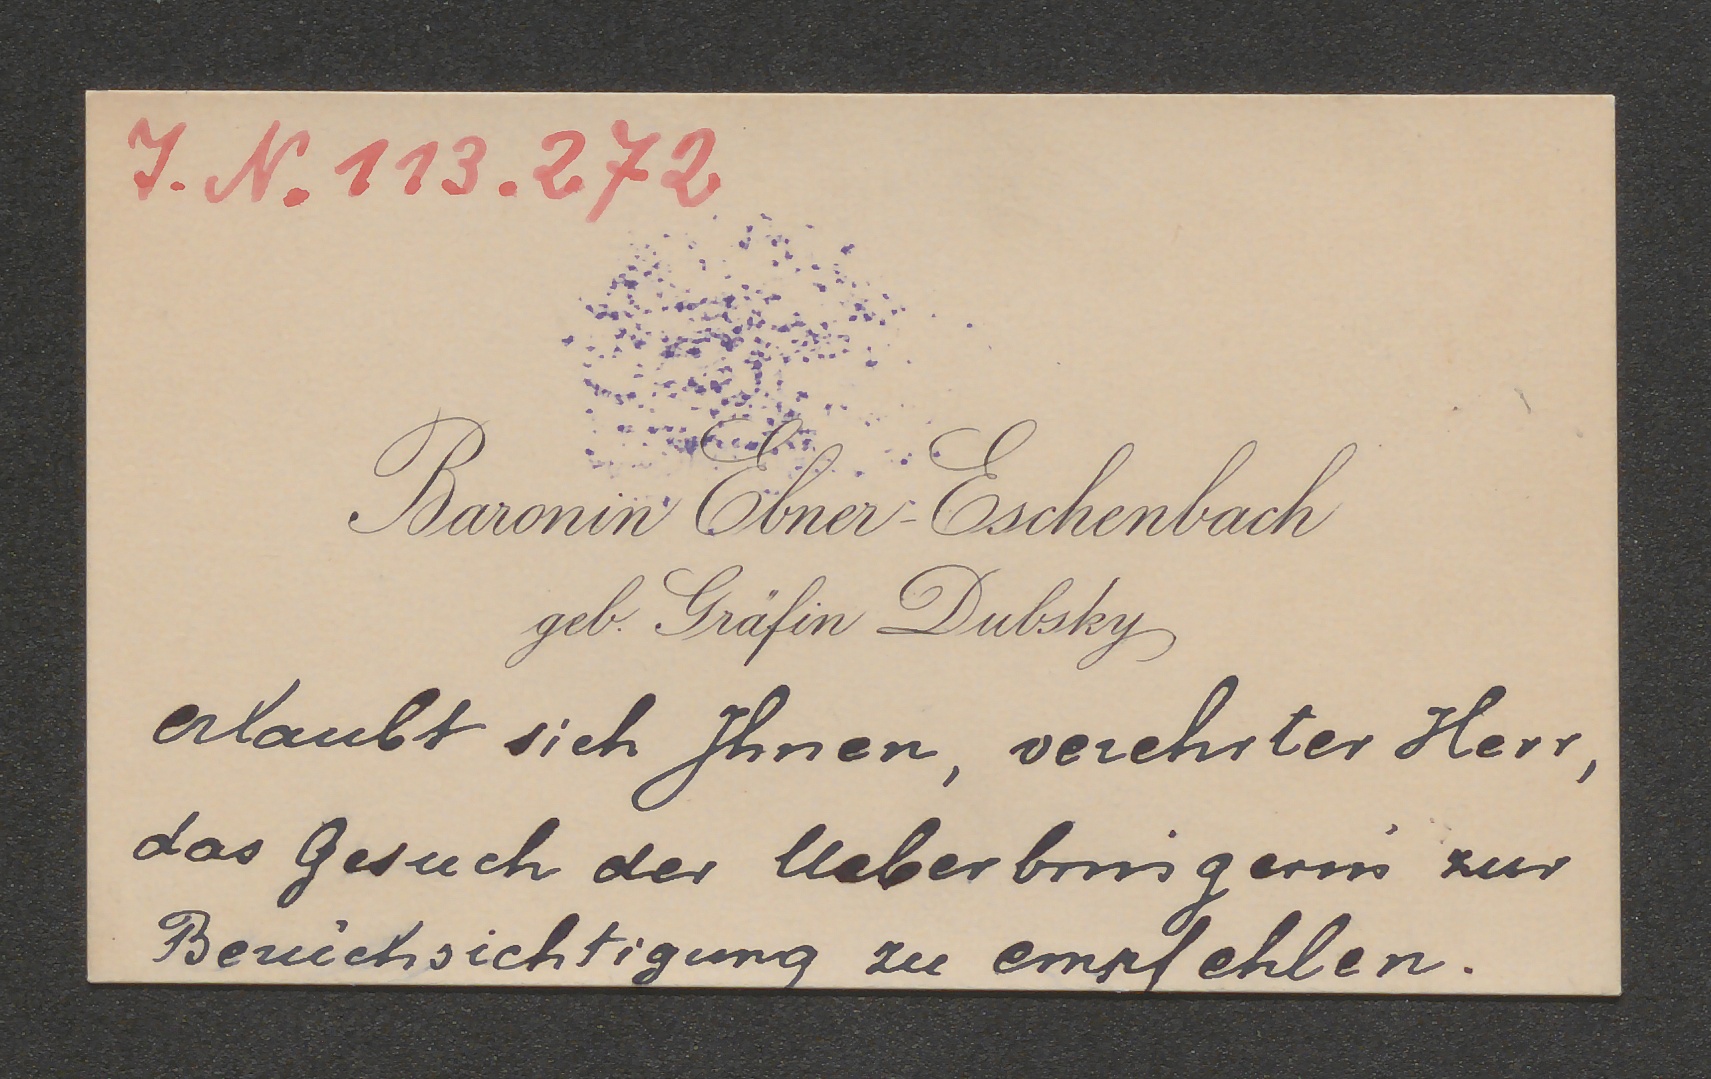 J. N. 113.272
Baronin Ebner-Eschenbach
geb. Gräfin Dubsky
erlaubt sich Ihnen, verehrter Herr,
das Gesuch der Ueberbringerin zur
Berücksichtigung zu empfehlen.